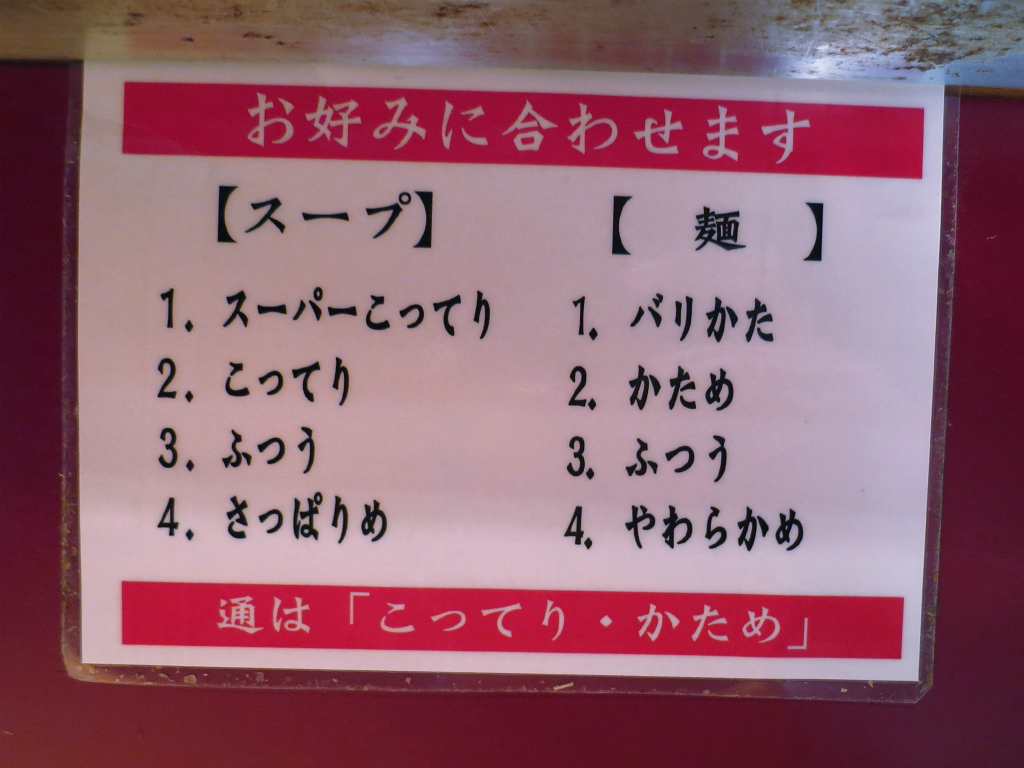 お好みに合わせます
【スープ】
1. スーパーこってり
2. こってり
3. ふつう
4. さっぱりめ
【 麺 】
1. バリかた
2. かため
3. ふつう
4. やわらかめ
通は「こってり・かため」